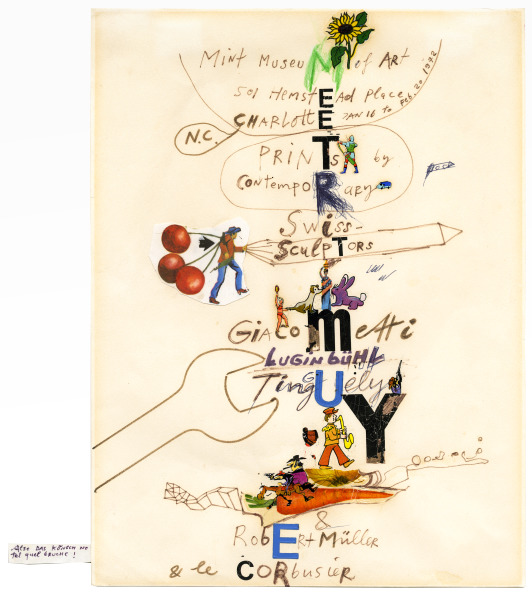 Mint Museum of Art
501 Hemstead Place
CHARLOTTE JAN 16 to Feb. 20
N.C.
PRINTs by
Contemporary
Swiss-
SculpTORS
GiacoMetti
LUGINBÜHL
Tinguely
&
RobERt Müller
& le CORbusier
Also DAS
tel quel bruche!